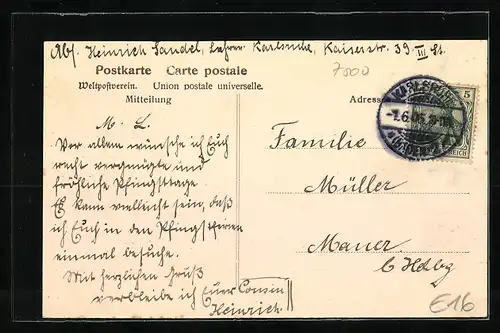 Abs. Heinrich Sandel, Lehrer Karlsruhe, Kaiserstr. 39 III St.
Postkarte Carte postale
7500
Weltpostverein. Union postale universelle.
Mitteilung
Adresse
KARLSRUHE
-1.6.06.
5
REICH
M. L.
Vor allem wünsche ich Euch
recht vergnügte und
fröhliche Pfingsttage.
Es kann vielleicht sein, daß
ich Euch in den Pfingstferien
einmal besuche.
Mit herzlichem Gruß
verbleibe ich Euer Cousin
Heinrich
Familie
Müller
Mauer
b Hdlbg
E16